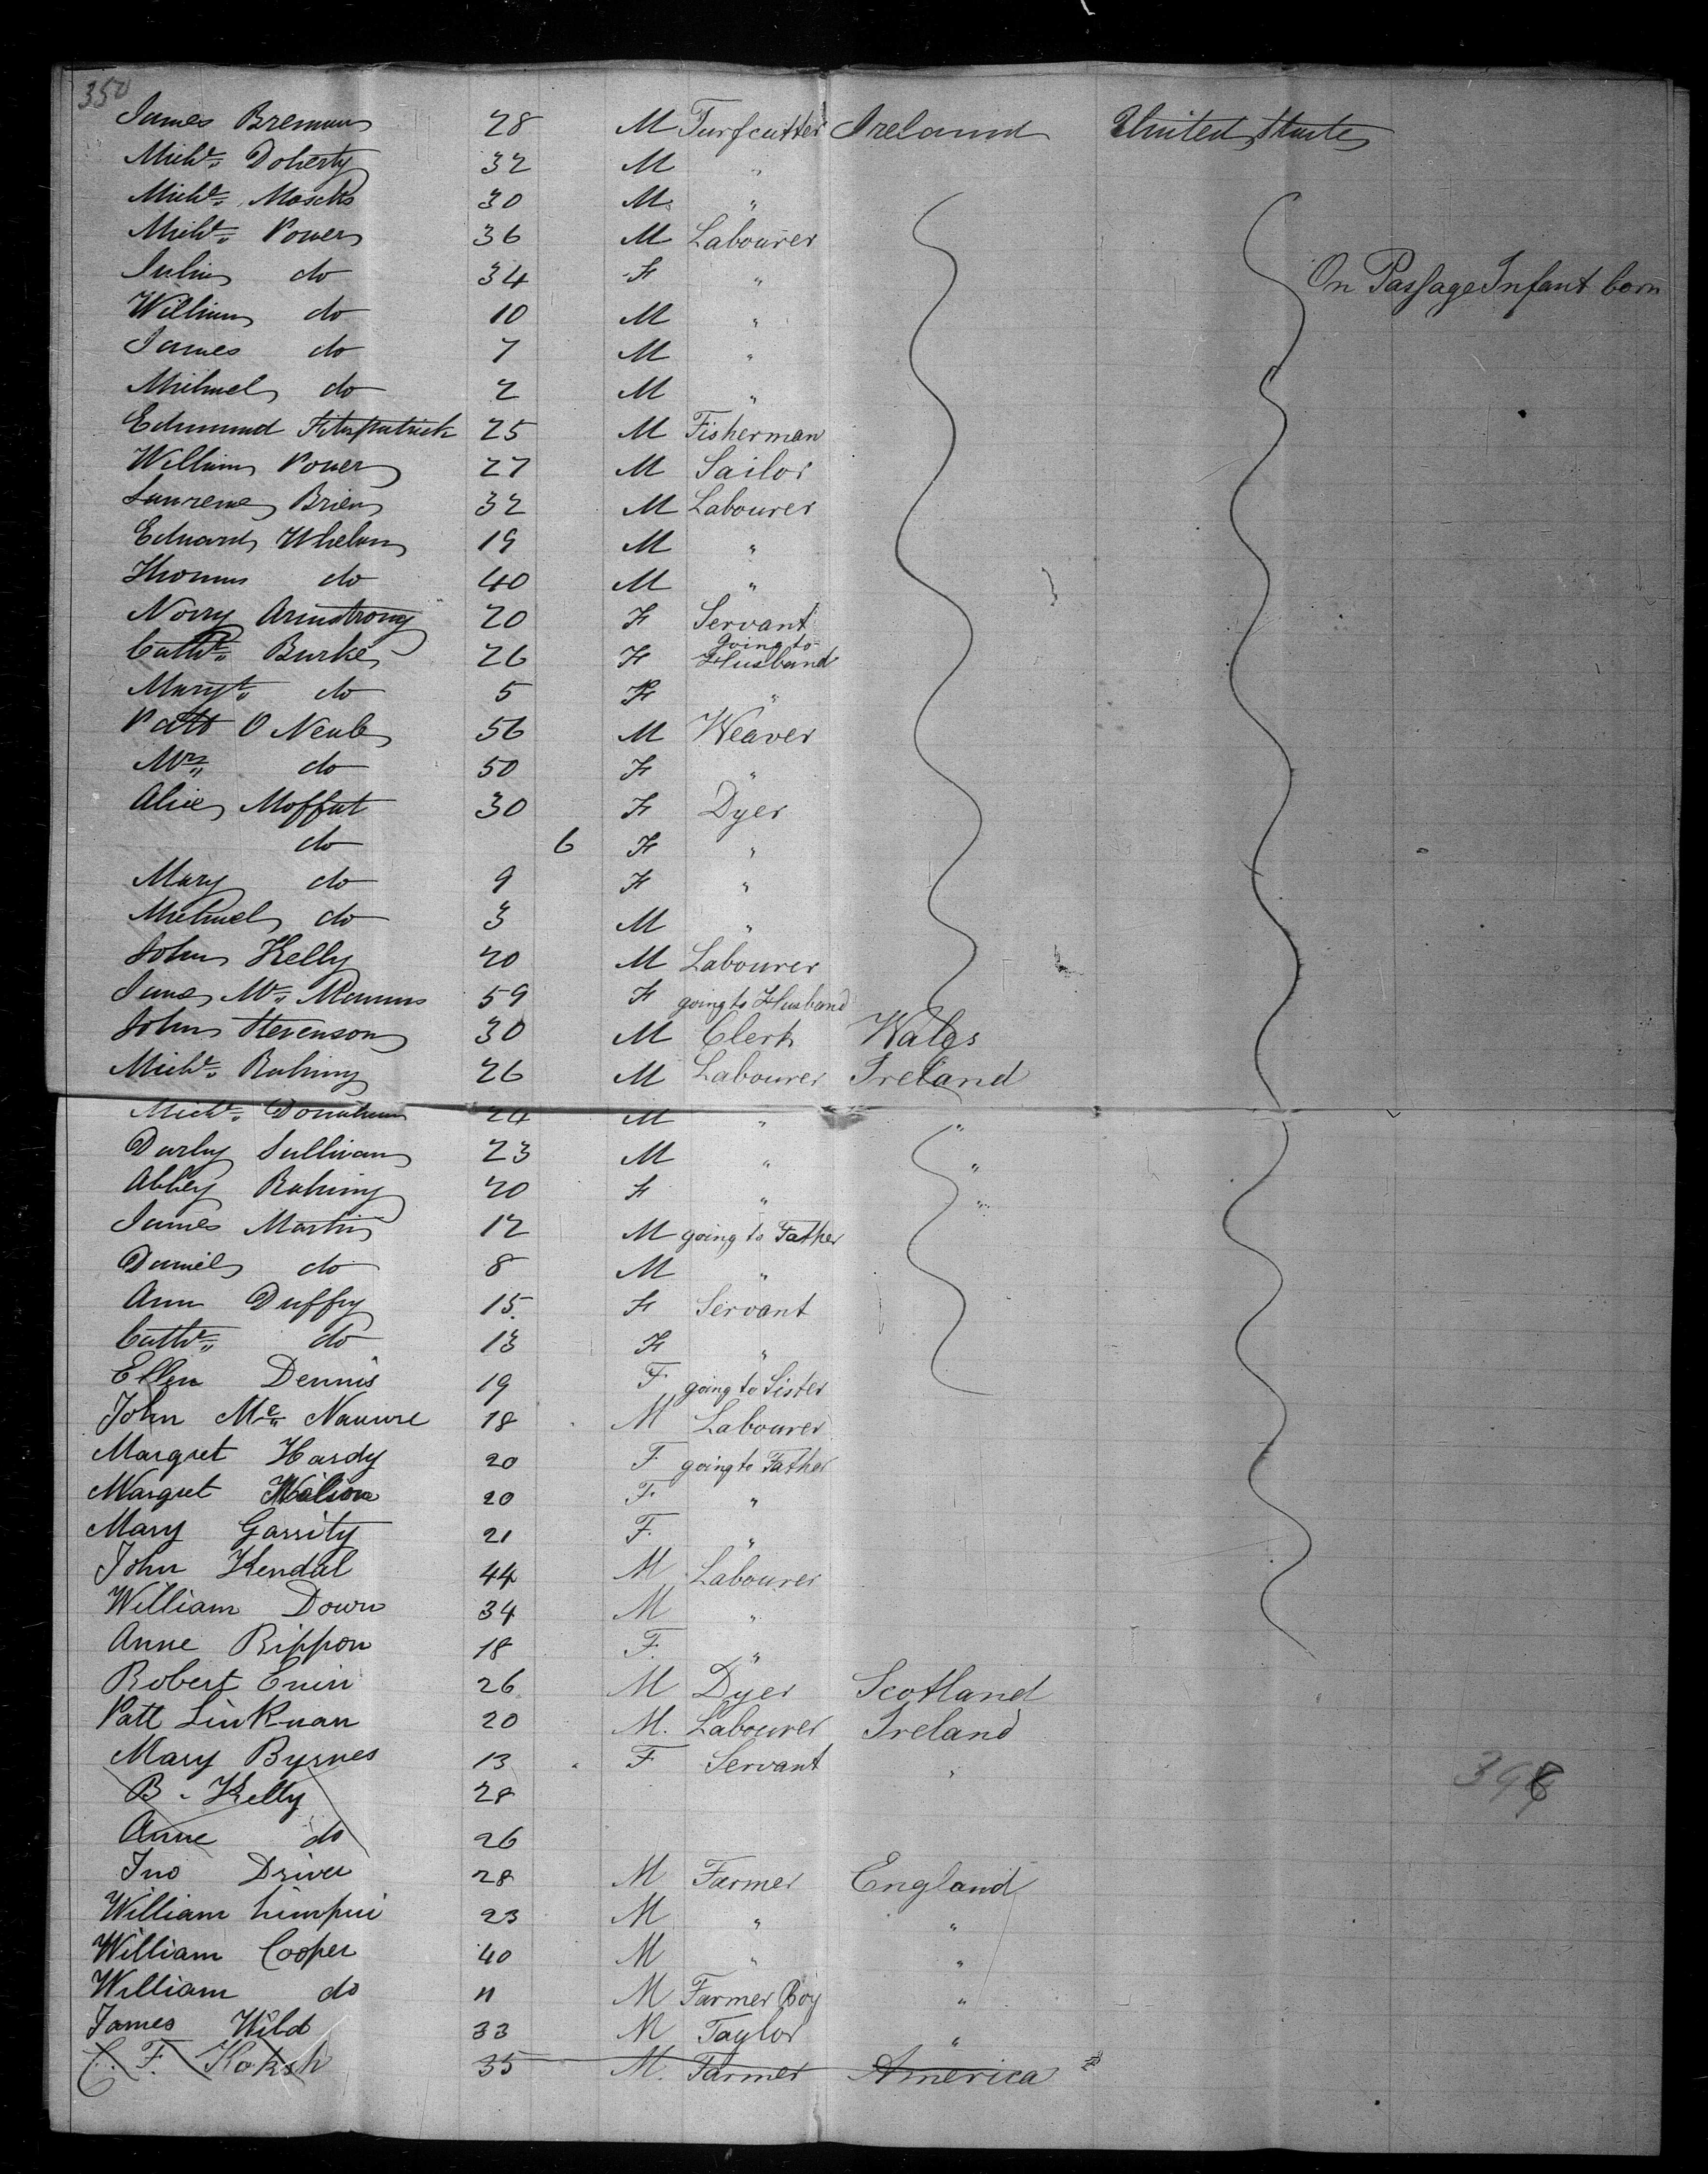 350
James Brennan 28 M Turfcutter Ireland United States
Michl. Doherty 32 M "
Michl. 30 M "
Michl. Power 36 M Labourer
Julia do 34 F " On Passage Infant born
William do 10 M "
James do 7 M "
Michael do 2 M "
Edmund Fitzpatrick 25 M Fisherman
William Power 27 M Sailor
Laurence Brien 32 M Labourer
Edward Whelan 19 M "
Thomas do 40 M "
Norry Armstrong 20 F Servant
Cathe. Burke 26 F going to Husband
Margt. do 5 F "
Patt O Neale 56 M Weaver
Mrs. do 50 F "
Alice Moffat 30 F Dyer
do 6 F "
Mary do 9 F "
Michael do 3 M "
John Kelly 20 M Labourer
Jane Mc. Manus 59 F going to Husband
John Stevenson 30 M Clerk Wales
Michl. 26 M Labourer Ireland
Michl. Donahue 24 M " "
Darby Sullivan 23 M " "
Abbey 20 F " "
James Martin 12 M going to Father
Daniel do 8 M "
Ann Duffy 15 F Servant
Cathe. do 13 F "
Ellen Dennis 19 F going to Sister
John Mc. 18 M Labourer
Margret Hardy 20 F going to Father
Margret 20 F "
Mary Garrity 21 F "
John Kendal 44 M Labourer
William Down 34 M "
Anne Rippon 18 F "
Robert 26 M Dyer Scotland
Patt 20 M. Labourer Ireland
Mary Byrnes 13 F Servant "
398
B. Kelly 28
Anne do 26
Jno Driver 28 M Farmer England
William 23 M " "
William Cooper 40 M " "
William do 11 M Farmer Boy "
James Wild 33 M Taylor "
C. F. 35 M. Farmer America